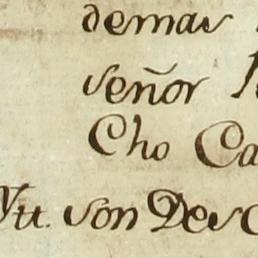 demas
señor
Cho Ca
Ytt. son Des